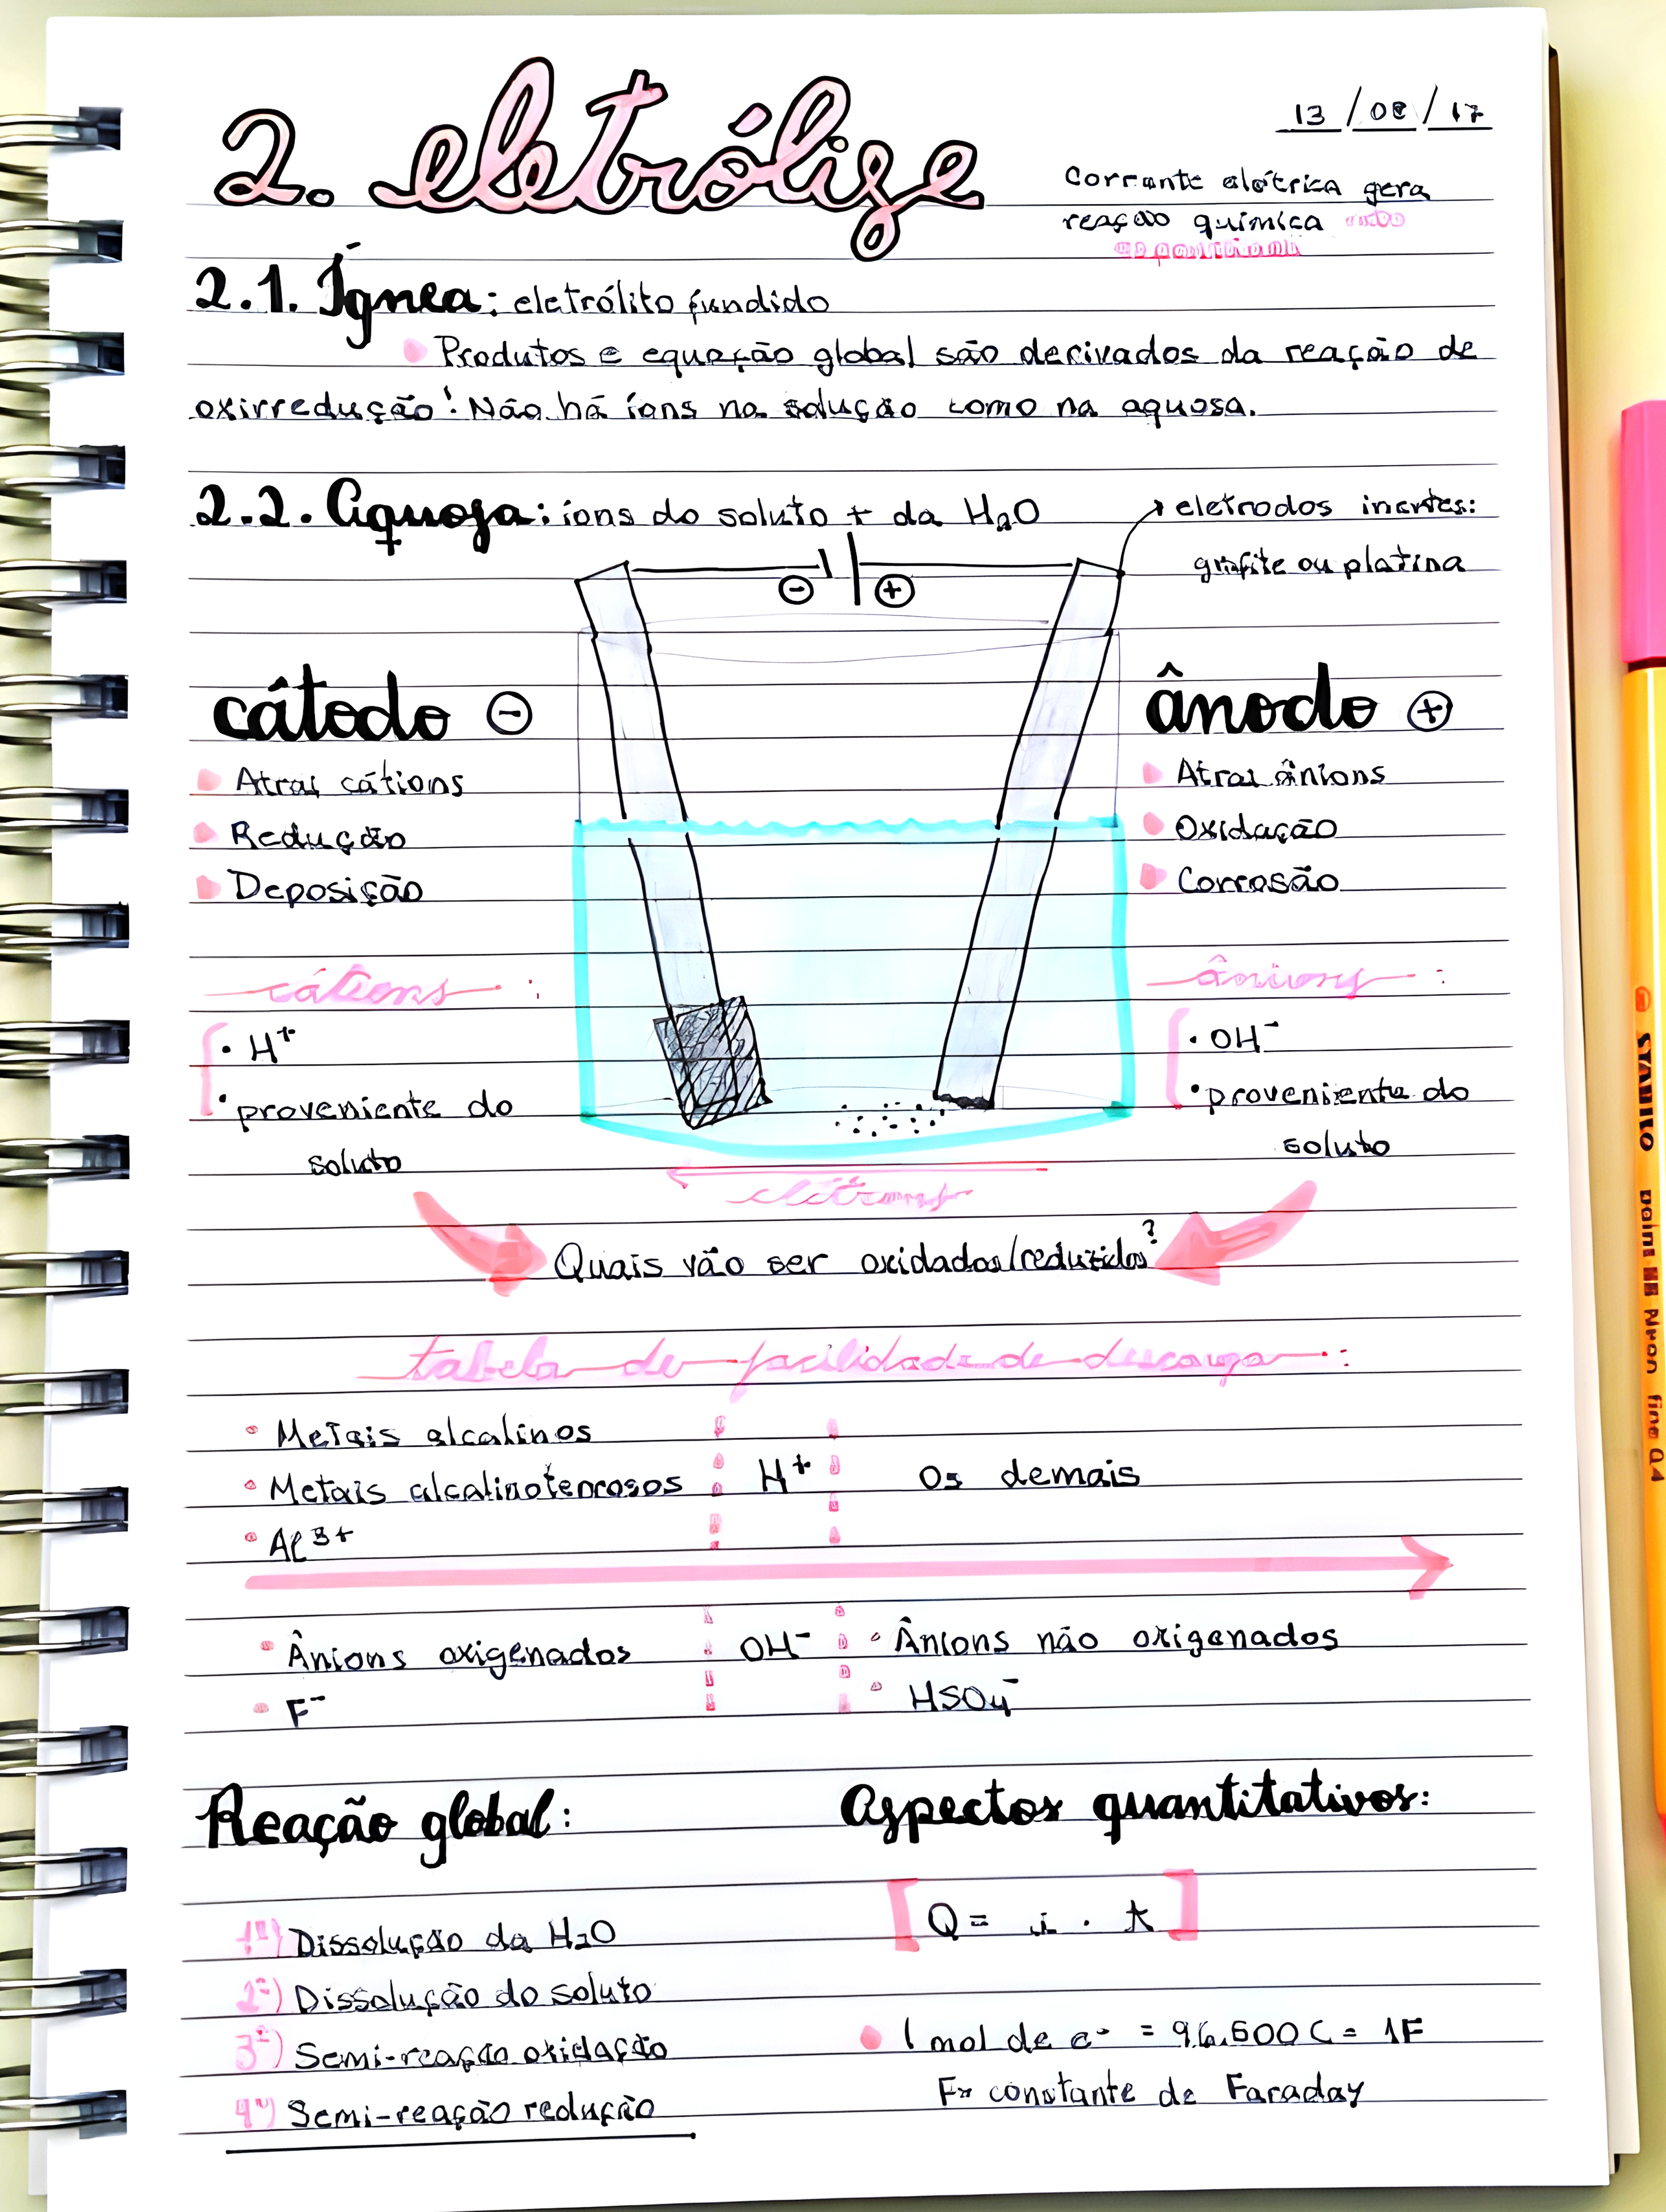 2. eletrólise
13/08/17
Corrente elétrica gera
reação química não
espontânea
2.1. Ígnea: eletrólito fundido
Produtos e equação global são derivados da reação de
oxirredução! Não há íons na solução como na aquosa.
2.2. Aquosa: íons do soluto + da H₂O
eletrodos inertes:
grafite ou platina
⊖ ⊕
cátodo ⊖
Atrai cátions
Redução
Deposição
ânodo ⊕
Atrai ânions
Oxidação
Corrosão
cátions:
• H⁺
• proveniente do
soluto
ânions:
• OH⁻
• proveniente do
soluto
elétrons
Quais vão ser oxidados/reduzidos?
tabela de facilidade de descarga:
• Metais alcalinos
• Metais alcalinoterrosos
• Al³⁺
H⁺
Os demais
• Ânions oxigenados
• F⁻
OH⁻
• Ânions não oxigenados
• HSO₄⁻
Reação global:
1º) Dissolução da H₂O
2º) Dissolução do soluto
3º) Semi-reação oxidação
4º) Semi-reação redução
Aspectos quantitativos:
[Q = i . t]
1 mol de e⁻ = 96.500C = 1F
F= constante de Faraday
STABILO point 88 fine 0,4